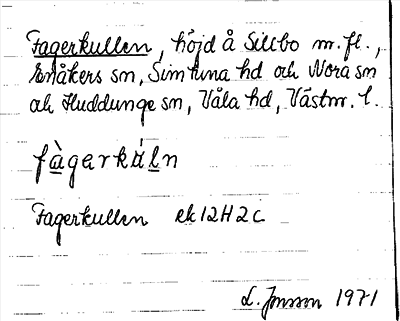 Fagerkullen, höjd å Sillbo m.fl.,
Enåkers sn, Simtuna hd och Nora sn
och Huddunge sn, Våla hd, Västm. l.
fàgarkúln
Fagerkullen ek 12H2c
L. Jonsson 1971